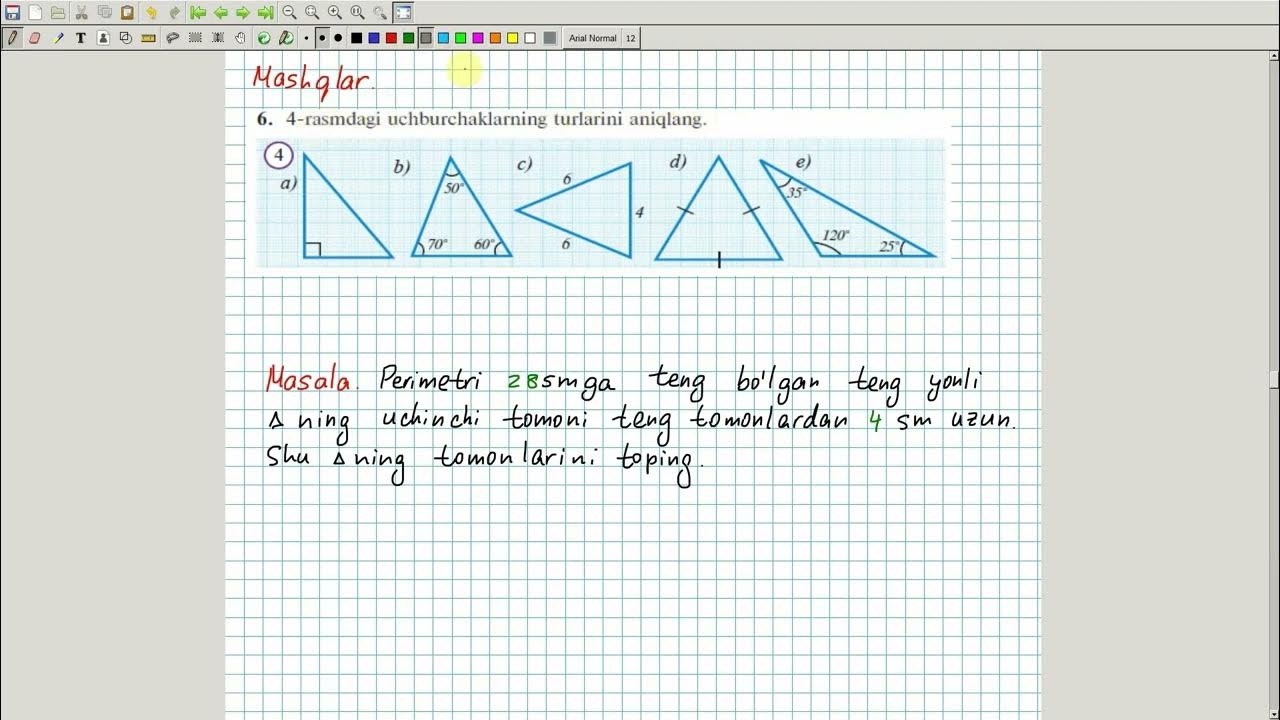 Arial Normal 12
Mashqlar.
6. 4-rasmdagi uchburchaklarning turlarini aniqlang.
4 a) b) c) d) e)
50° 70° 60°
6 4 6
35° 120° 25°
Masala. Perimetri 28smga teng bo'lgan teng yonli
Δ ning uchinchi tomoni teng tomonlardan 4 sm uzun.
Shu Δ ning tomonlarini toping.